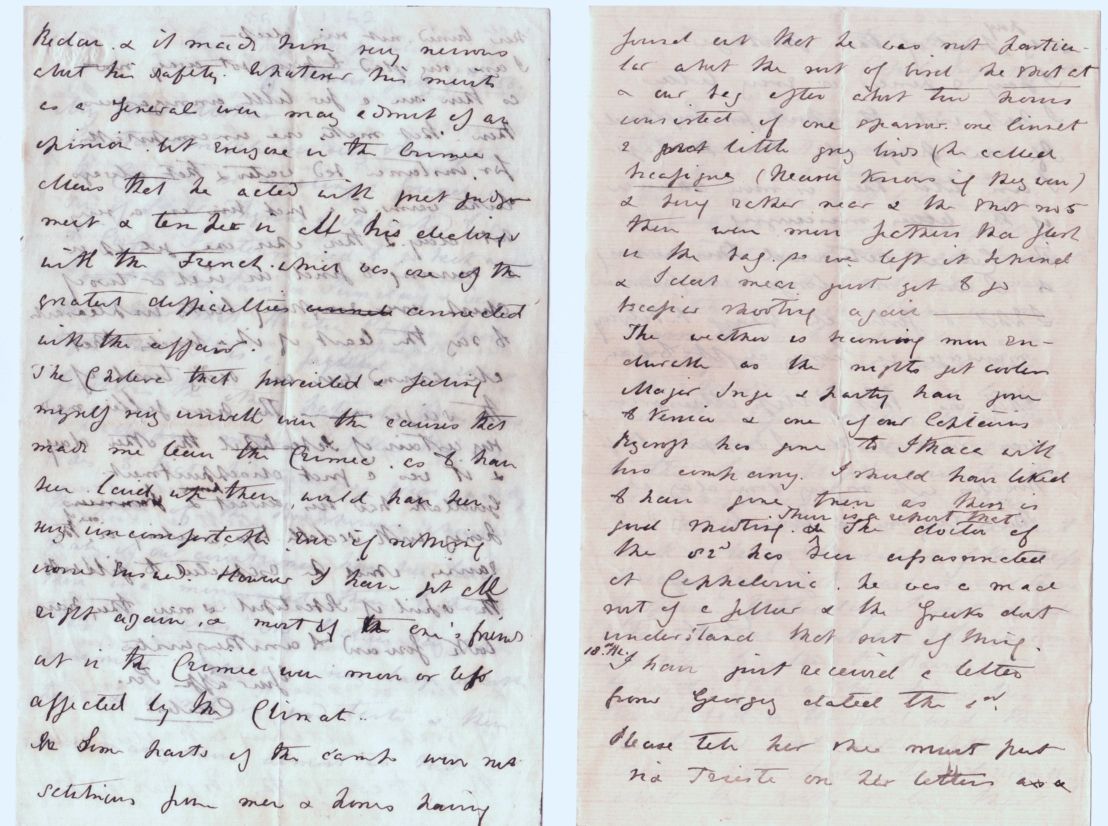 Redan. & it made him very nervous
about his safety. Whatever his merits
as a General were may admit of an
opinion. but everyone in the Crimea
allows that he acted with great judge
ment & in all his dealings
with the French. which was one of the
greatest difficulties connected
with the affair.
The Cholera that prevailed & feeling
myself very unwell were the causes that
made me leave the Crimea. as to have
been laid up there would have been
very uncomfortable even if nothing
worse ensued. However I have got all
right again, & most of the one's friends
out in the Crimea were more or less
affected by the Climate.
Some parts of the camp were not
salubrious from men & horses having
found out that he was not particu-
lar about the sort of bird he shot at
& our bag after about two hours
consisted of one sparrow. one linnet
2 little grey birds (he called
(Heaven knows if they were)
& being rather near & the shot no 5
there were more feathers than flesh
in the bag, so we left it behind
& I dont mean just yet to go
shooting again
The weather is becoming more en-
durable as the nights get cooler
Major Inge & party have gone
to Venice & one of our Captains
has gone to Ithaca with
his company. I should have liked
to have gone there as there is
good shooting. There is a report that The doctor of
the 82d has been assassinated
at Cephalonia. he was a mad
sort of a fellow & the Greeks dont
understand that sort of thing.
18th. I have just received a letter
from Georgy dated the
Please tell her she must put
via Trieste on her letters as a